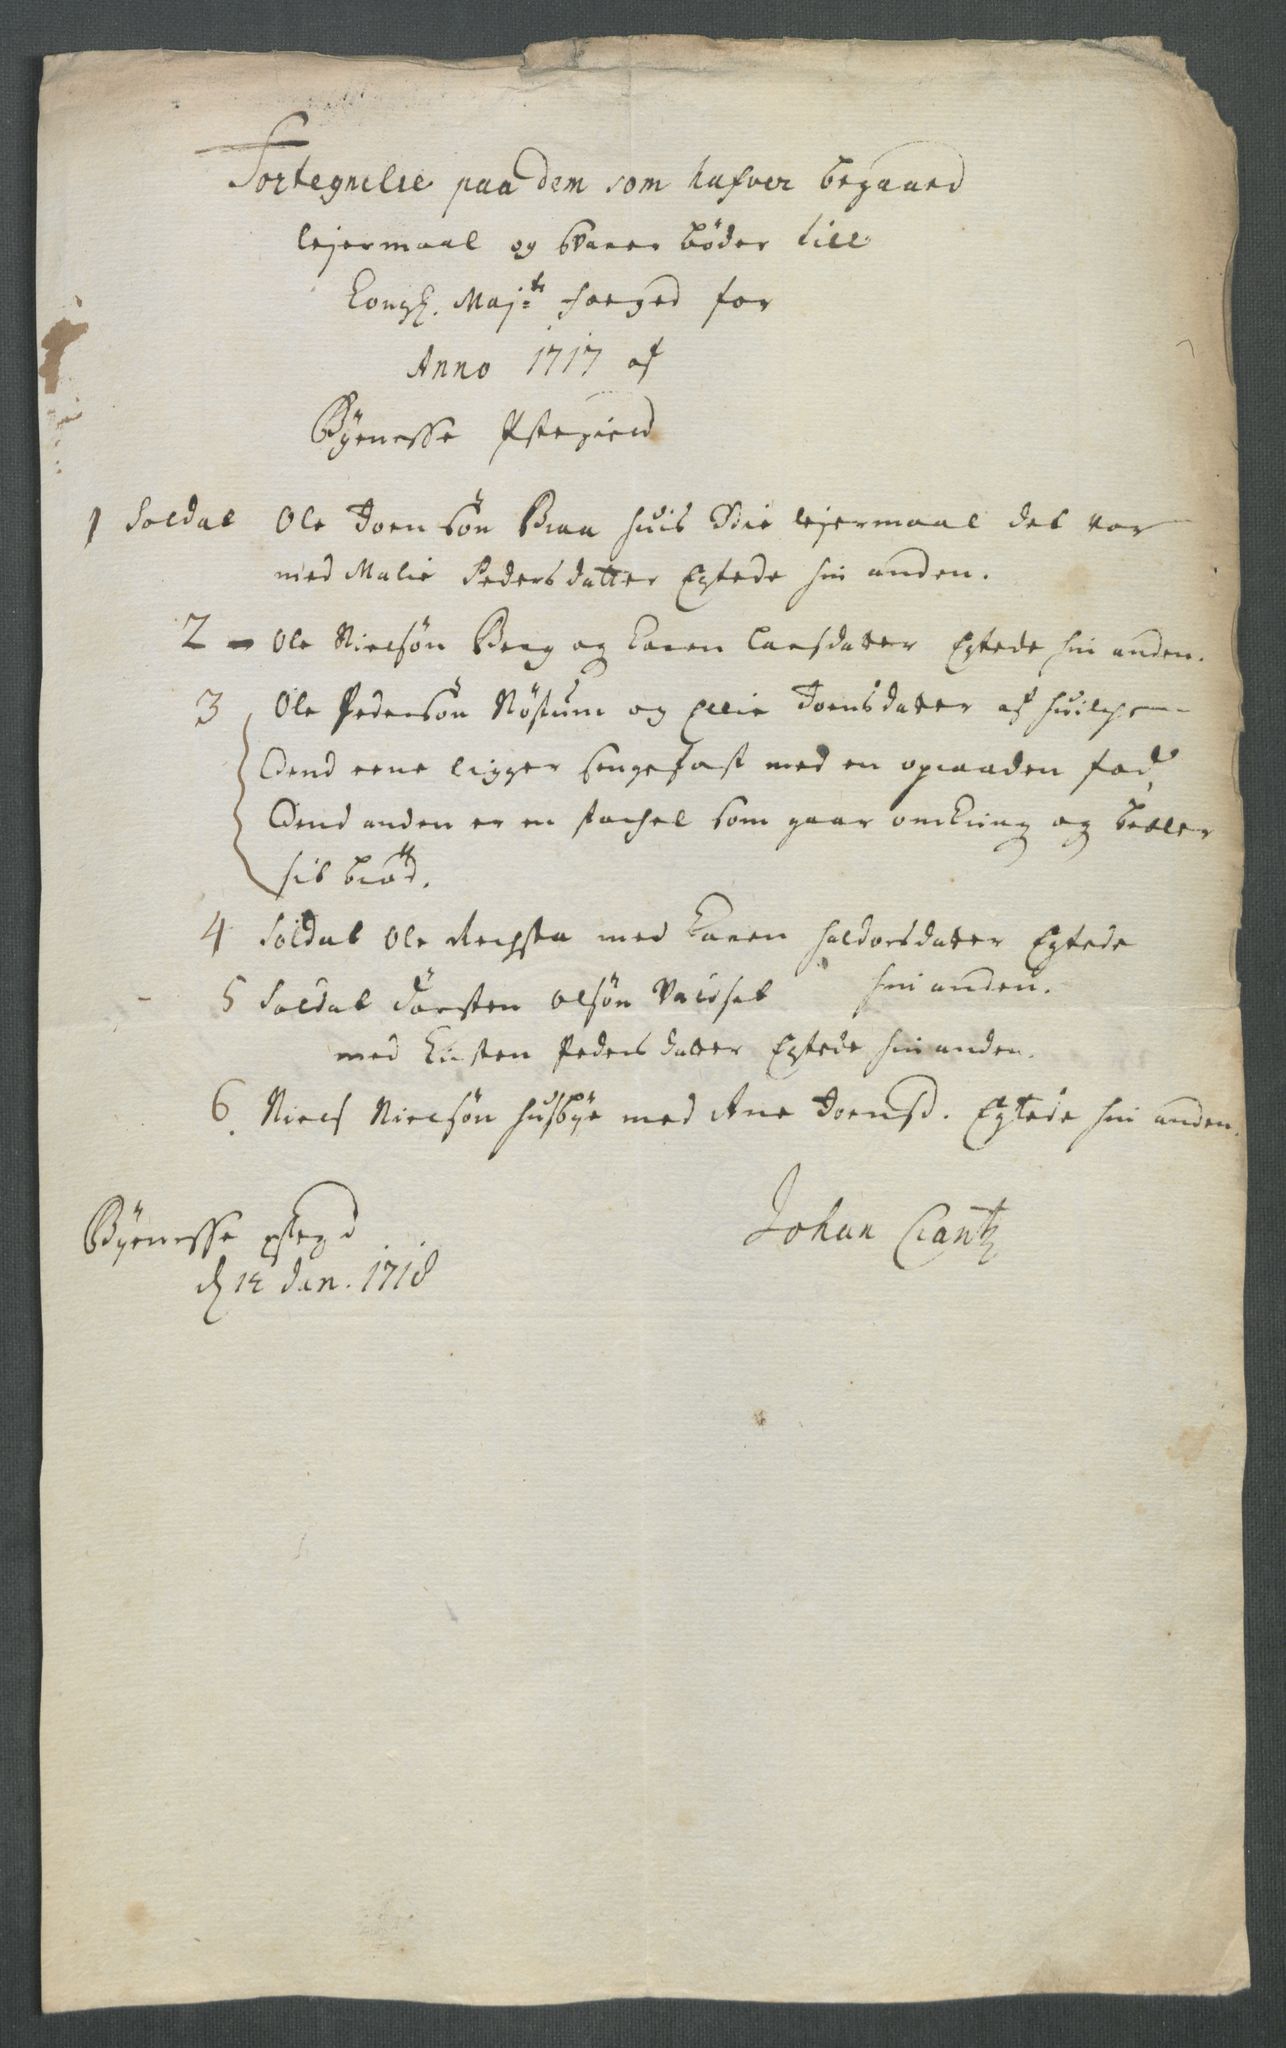 Fortegnelse paa dem som hafver begaaed
lejermaal og svarer bøder till
Kongl. Maj:ts foeged for
Anno 1717 af
Byenesse Præstegield
1 Soldat Ole Joensøn Braa huis 3die lejermaal det var
med Malie Pedersdatter Egtede hin anden.
2 - Ole Nielsøn Berg og Karen Larsdatter Egtede hin anden.
3 Ole Pedersøn Røstum og Ellie Joensdatter af huilche
dend eene ligger sengefast med en opraaden fod,
dend anden er en stachel som gaar omkring og betler
sit brød.
4 Soldat Ole Rechsta med Karen Haldorsdatter Egtede
hin anden.
5 Soldat Torsten Olsøn
med Kirsten Pedersdatter Egtede hin anden.
6. Niels Nielsøn Husbye med Ane Joensd. Egtede hin anden.
Byenesse pstegd
d 12 Jan. 1718
Johan Crantz